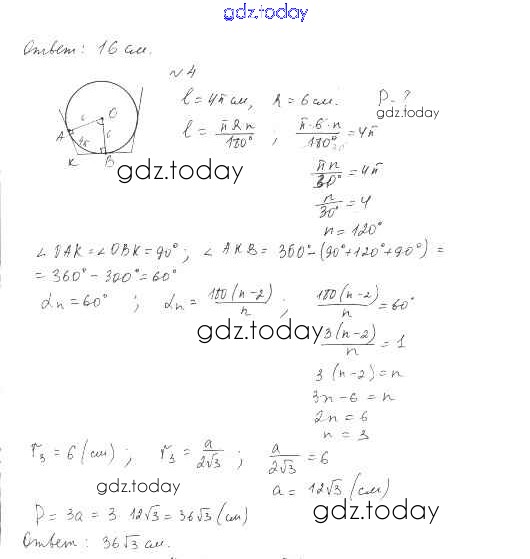 gdz.today
Ответ: 16 см.
№4
l = 4π см, R = 6 см. P - ?
gdz.today
l = πRn/180°; π·6·n/180° = 4π
30
πn/30° = 4π
n/30° = 4
n = 120°
O
6
6
A
4π
K
B
gdz.today
∠OAK = ∠OBK = 90°; ∠AKB = 360° - (90° + 120° + 90°) =
= 360° - 300° = 60°
αn = 60°; αn = 180(n-2)/n; 180(n-2)/n = 60°
gdz.today
3(n-2)/n = 1
3(n-2) = n
3n - 6 = n
2n = 6
n = 3
r₃ = 6 (см); r₃ = a/2√3; a/2√3 = 6
gdz.today
a = 12√3 (см)
P = 3a = 3·12√3 = 36√3 (см)
gdz.today
Ответ: 36√3 см.